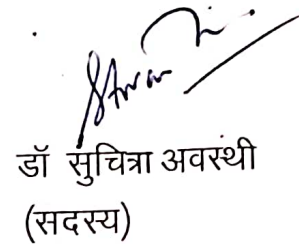 डॉ सुचित्रा अवस्थी
(सदस्य)